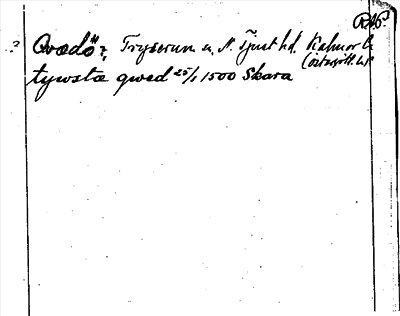 RAP
? Qvædö?, Tryserum s. N. Tjust hd. Kalmar l.
(östergötl. l.)
tywsta qwed 25/1 1500 Skara